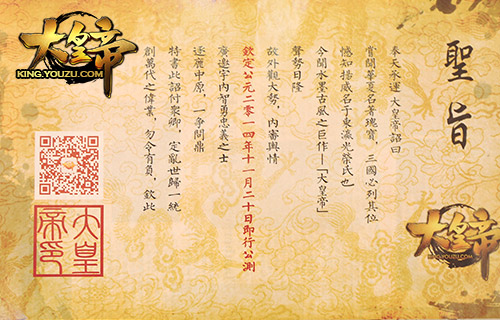 聖旨
奉天承運 大皇帝詔曰
嘗聞華夏名著瑰寶，三國必列其位
憾知揚威名于東瀛光榮氏也
今聞水墨古風之巨作—「大皇帝」
聲勢日隆
故外觀大勢，內審輿情
欽定公元二零一四年十一月二十日即行公測
廣邀宇內智勇忠義之士
逐鹿中原，一爭問鼎
特書此詔付眾卿，定亂世歸一統
創萬代之偉業，勿令有負，欽此
大皇帝
KING.YOUZU.COM
大皇帝印
大皇帝
KING.YOUZU.COM